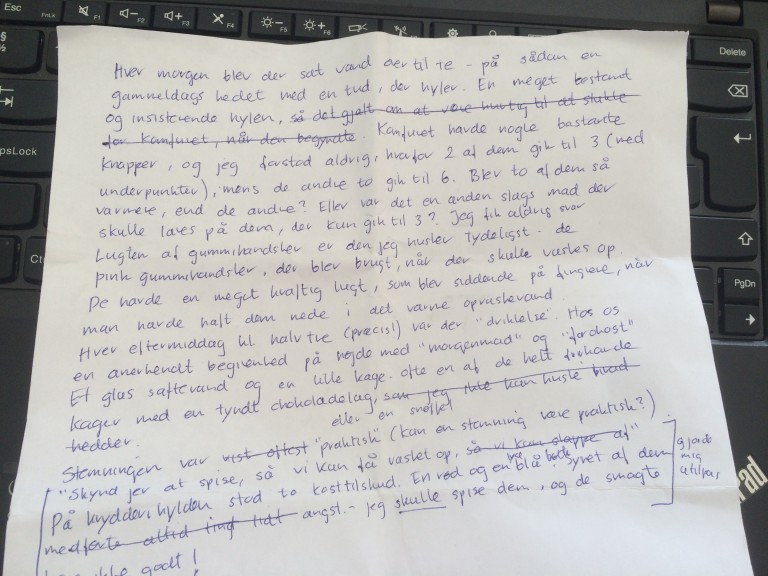 Hver morgen blev der sat vand over til te - på sådan en
gammeldags kedel med en tud, der hyler. En meget bestemt
og insisterende hylen, så det gjalt om at være hurtig til at slukke
for komfuret, når den begyndte. Komfuret havde nogle bastante
knapper, og jeg forstod aldrig, hvorfor 2 af dem gik til 3 (med
underpunkter), mens de andre to gik til 6. Blev to af dem så
varmere, end de andre? Eller var det en anden slags mad der
skulle laves på dem, der kun gik til 3? Jeg fik aldrig svar
Lugten af gummihandsker er den jeg husker tydeligst. de
pink gummihandsker, der blev brugt, når der skulle vaskes op.
De havde en meget kraftig lugt, som blev siddende på fingrene, når
man havde haft dem nede i det varme opvaskevand.
Hver eftermiddag kl. halv tre (præcis!) var der "drikkelse". Hos os
en anerkendt begivenhed på højde med "morgenmad" og "frokost"
Et glas saftevand og en lille kage. Ofte en af de helt forhånde
kager med en tyndt chokoladelag, som jeg ikke kan huske hvad
hedder.
eller en snøflet
Stemningen var mest oftest "praktisk" (kan en stemning være praktisk?)
"Skynd jer at spise, så vi kan få vasket op, så vi kan slappe af"
På krydderihylden stod to kosttilskud. En rød og en blå. Synet af dem
medførte altid lidt angst. - jeg skulle spise dem, og de smagte
ikke godt!
gjorde
mig
utilpas,
Esc
FnLk
F1
F2
F3
F4
F5
F6
Delete
PgDn
psLock
Ct
Pad